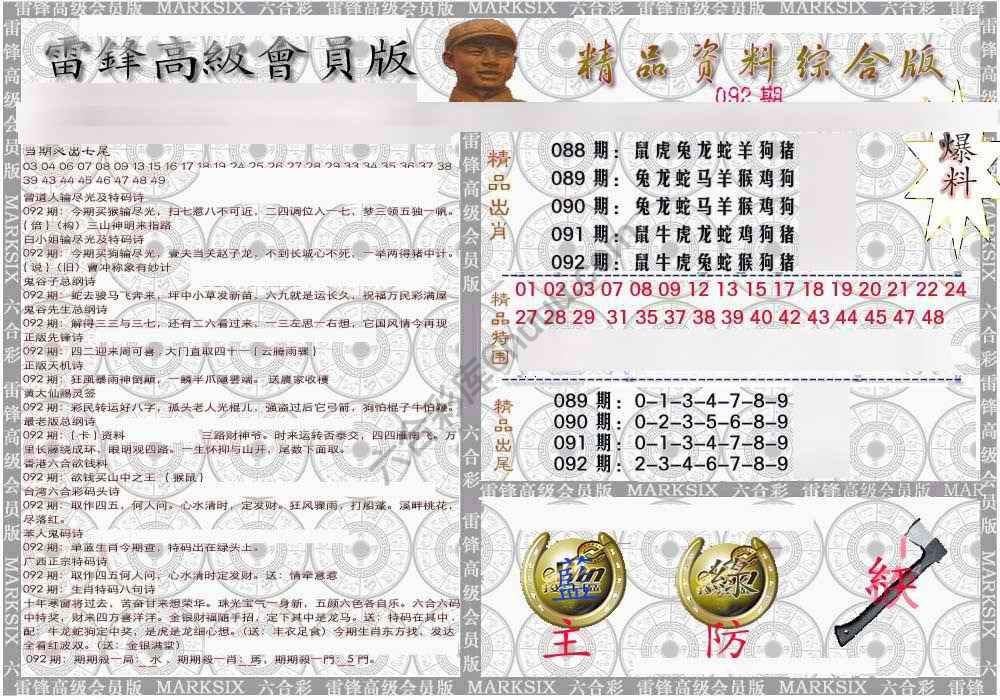 雷锋高级会员版 MARKSIX 六合彩 雷锋高级会员版 MARKSIX 六合彩 雷锋高级会员版 MARKSIX
雷鋒高級會員版
精品资料综合版
092期
爆料
当期突出七尾
03 04 06 07 08 09 13 15 16 17 18 19 24 25 26 27 28 29 33 34 35 36 37 38
39 43 44 45 46 47 48 49
曾道人输尽光及特码诗
092期：今期买猴输尽光，扫七惹八不可近，二四调位入一七，梦三领五独一帆。
{倍}（构）三山神明来指路
白小姐输尽光及特码诗
092期：今期买狗输尽光，壹夫当关赵子龙，不到长城心不死，一举两得猪中计。
{说}（旧）曹冲称象有妙计
鬼谷子总纲诗
092期：蛇去骏马飞奔来，坪中小草发新苗，六九就是运长久，祝福万民彩满屋
鬼谷先生总纲诗
092期：解得三三与三七，还有二六看过来，一三左思一右想，它国风情今再现
正版先锋诗
092期：四二迎来周可喜，大门直取四十一{云腾雨骤}
正版天机诗
092期：狂風暴雨神倒顛，一鳞半爪隱雲端。 送農家收穫
黄大仙赐灵签
092期：彩民转运好八字，孤头老人光棍儿，强盗过后它弓箭，狗怕棍子牛怕鞭。
最老版总纲诗
092期：{卡}资料 三路财神爷。时来运转否泰交，四四雁南飞。万
里长藤绕成环，眼明观四路。一生怀抑与山开，尾数下面取。
香港六合欲钱料
092期：欲钱买山中之王 {猴鼠}
台湾六合彩码头诗
092期：取作四五，何人问。心水清时，定发财。狂风骤雨，打船篷。溪畔桃花，
尽落红。
本人鬼码诗
092期：单蓝生肖今期查，特码出在绿头上。
广西正宗特码诗
092期：取作四五何人问，心水清时定发财。送：情牵意惹
092期：生肖特码八句诗
十年寒窗将过去，苦奋甘来想荣华。珠光宝气一身新，五颜六色各自乐。六合六码
中特奖，财来四方喜洋洋。金银财福随手招，定下其中是龙马。送：特码在其中．
配：牛龙蛇狗定中奖，是虎是龙细心想。（送：丰衣足食）今期生肖东方找，发达
全看红波双。（送：金银满堂）
092期：期期殺一局：水，期期殺一肖：馬，期期殺一門：5門。
精品出肖
088 期：鼠虎兔龙蛇羊狗猪
089 期：兔龙蛇马羊猴鸡狗
090 期：兔龙蛇马羊猴鸡狗
091 期：鼠牛虎龙蛇鸡狗猪
092 期：鼠牛虎兔蛇猴狗猪
精品特围
01 02 03 07 08 09 12 13 15 17 18 19 20 21 22 24
27 28 29 31 35 37 38 39 40 42 43 44 45 47 48
精品出尾
089 期：0-1-3-4-7-8-9
090 期：0-2-3-5-6-8-9
091 期：0-1-3-4-7-8-9
092 期：2-3-4-6-7-8-9
雷锋高级会员版 MARKSIX 六合彩 雷锋高级会员版 MARK
藍
主
綠
防
紅
殺
雷锋高级会员版 MARKSIX 六合彩 雷锋高级会员版 MARKSIX 六合彩 雷锋高级会员版 MARKSIX